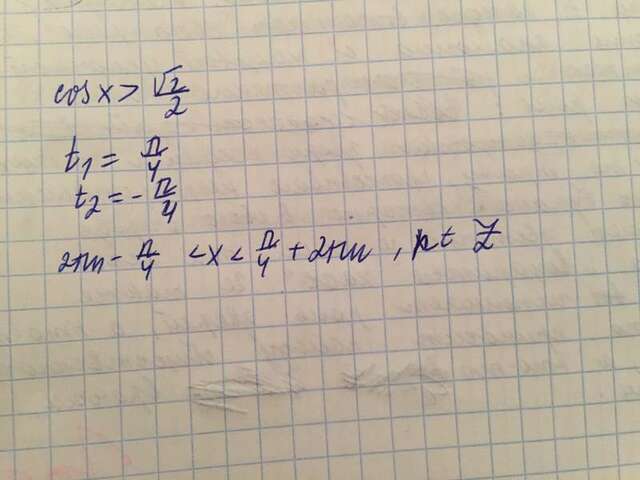 cos x > √2/2
t₁ = π/4
t₂ = - π/4
2πn - π/4 < x < π/4 + 2πn , n ∈ Z